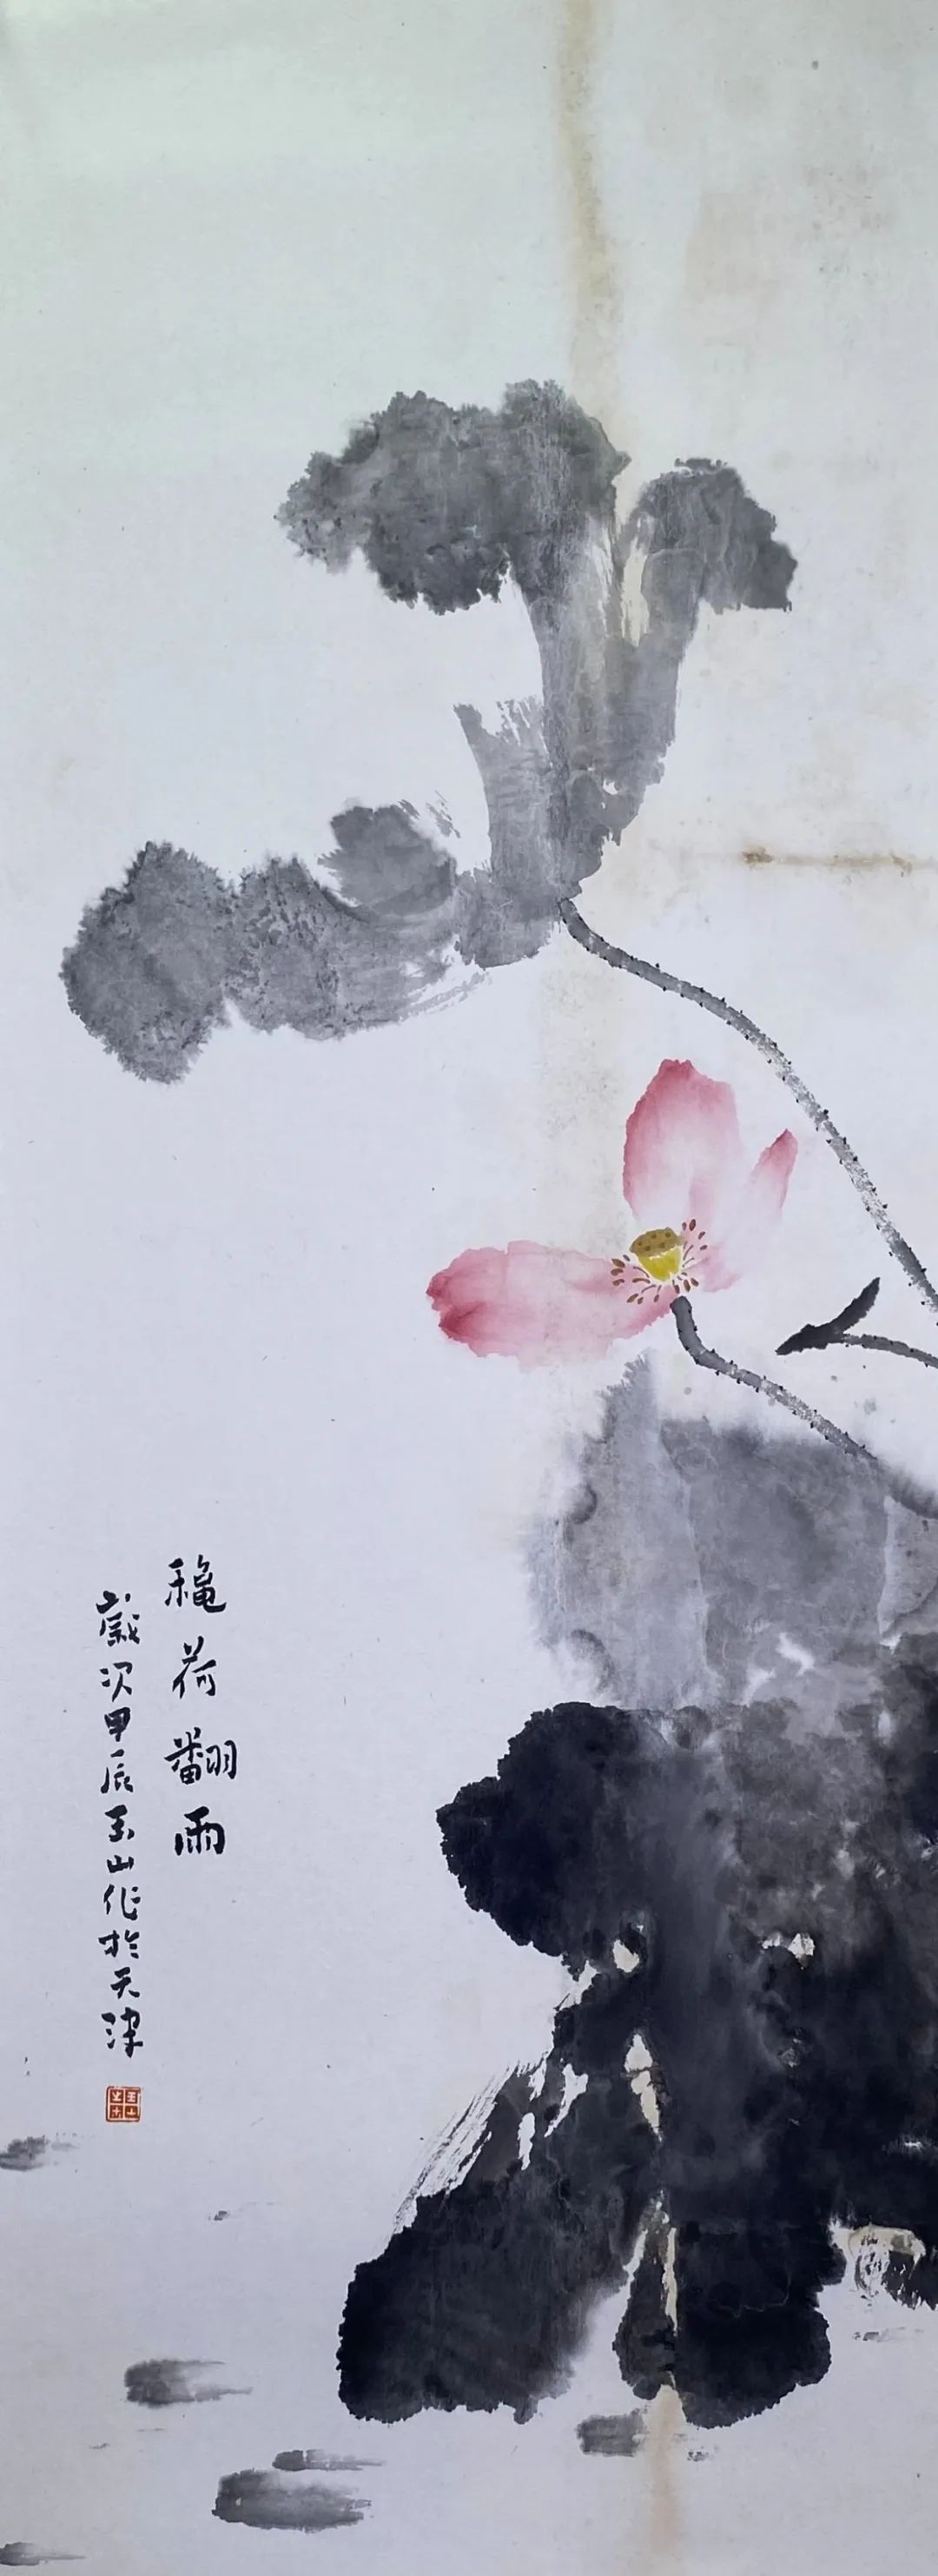 穐荷翻雨
歲次甲辰玉山作於天津